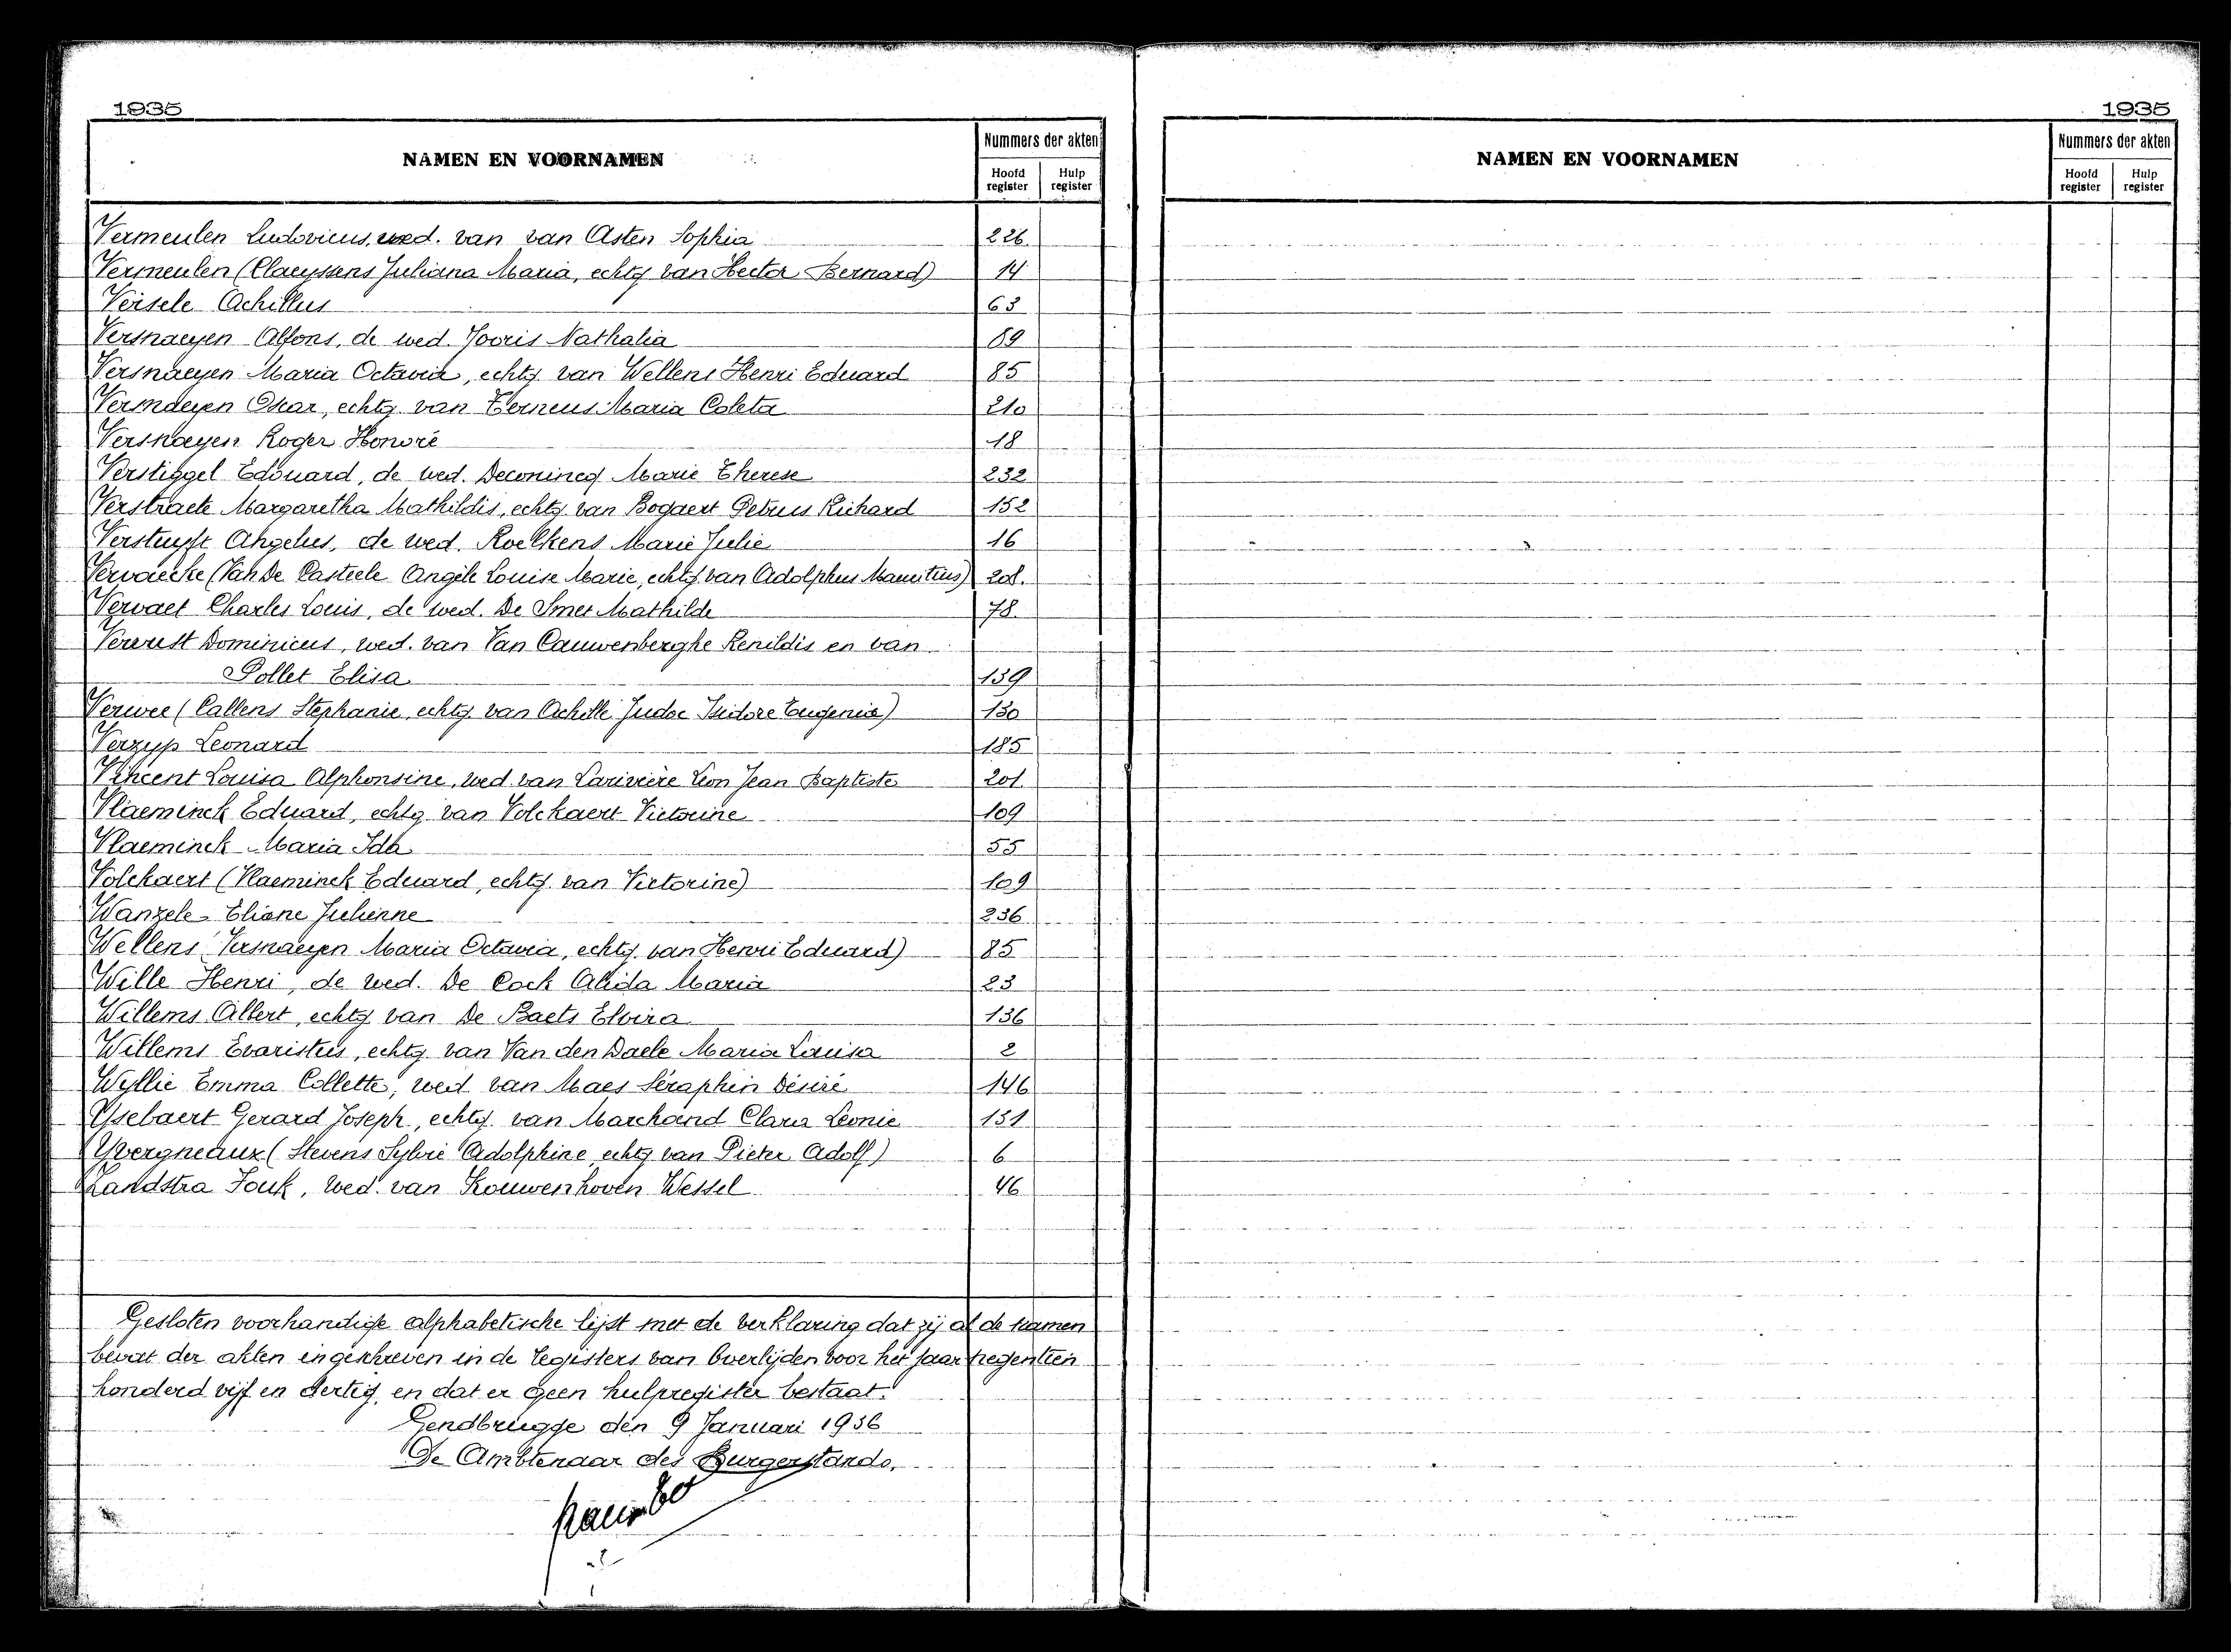 1935
NAMEN EN VOORNAMEN
Nummers der akten
Hoofd register
Hulp register
Vermeulen Ludovicus, wed. van van Asten Sophia 226.
Vermeulen (Claeyssens Juliana Maria, echtg van Hector Bernard) 14
Versele Achillus 63
Versnaeyen Alfons, de wed. Jooris Nathalia 69
Versnaeyen Maria Octavia, echtg. van Wellens Henri Eduard 85
Versnaeyen Oskar, echtg. van Terneus Maria Coleta 210
Versnaeyen Roger Honoré 18
Verstiggel Edouard, de wed. Deconincq Marie Therese 232
Verstraete Margaretha Mathildis, echtg. van Bogaert Petrus Richard 152
Verstuyft Angelus, de wed. Roelkens Marie Julie 16
Vervaecke (Van De Casteele Angèle Louise Marie, echtg. van Adolphus Mauritius) 208.
Vervaet Charles Louis, de wed. De Smet Mathilde 78.
Verwest Dominicus, wed. van Van Cauwenberghe Renildis en van
Pollet Elisa 139
Verwee (Callens Stephanie, echtg. van Achille Judoc Isidore Eugenie) 130
Verzyp Leonard 185
Vincent Louisa Alphonsine, wed van Larivière Leon Jean Baptiste 201.
Vlaeminck Eduard, echtg. van Volckaert Victorine 109
Vlaeminck Maria Ida 55
Volckaert (Vlaeminck Eduard, echtg. van Victorine) 109
Wanzele Eliane Julienne 236
Wellens (Versnaeyen Maria Octavia, echtg. van Henri Eduard) 85
Wille Henri, de wed. De Cock Alida Maria 23
Willems Albert, echtg van De Baets Elvira 136
Willems Evaristus, echtg van Van den Daele Maria Louisa 2
Wyllie Emma Collette, wed. van Maes Séraphin Désiré 146
Ysebaert Gerard Joseph, echtg. van Marchand Clara Leonie 131
Yvergneaux (Stevens Sylvie Adolphine echtg van Pieter Adolf) 6
Zandstra Fouk, wed. van Kouwenhoven Wessel 46
Gesloten voorhandige alphabetische lijst met de verklaring dat zij al de namen
bevat der akten ingeschreven in de registers van Overlijden voor het jaar negentien
honderd vijf en dertig, en dat er geen hulpregister bestaat.
Gendbrugge den 9 Januari 1936
De Ambtenaar des Burgerstands.
1935
NAMEN EN VOORNAMEN
Nummers der akten
Hoofd register
Hulp register